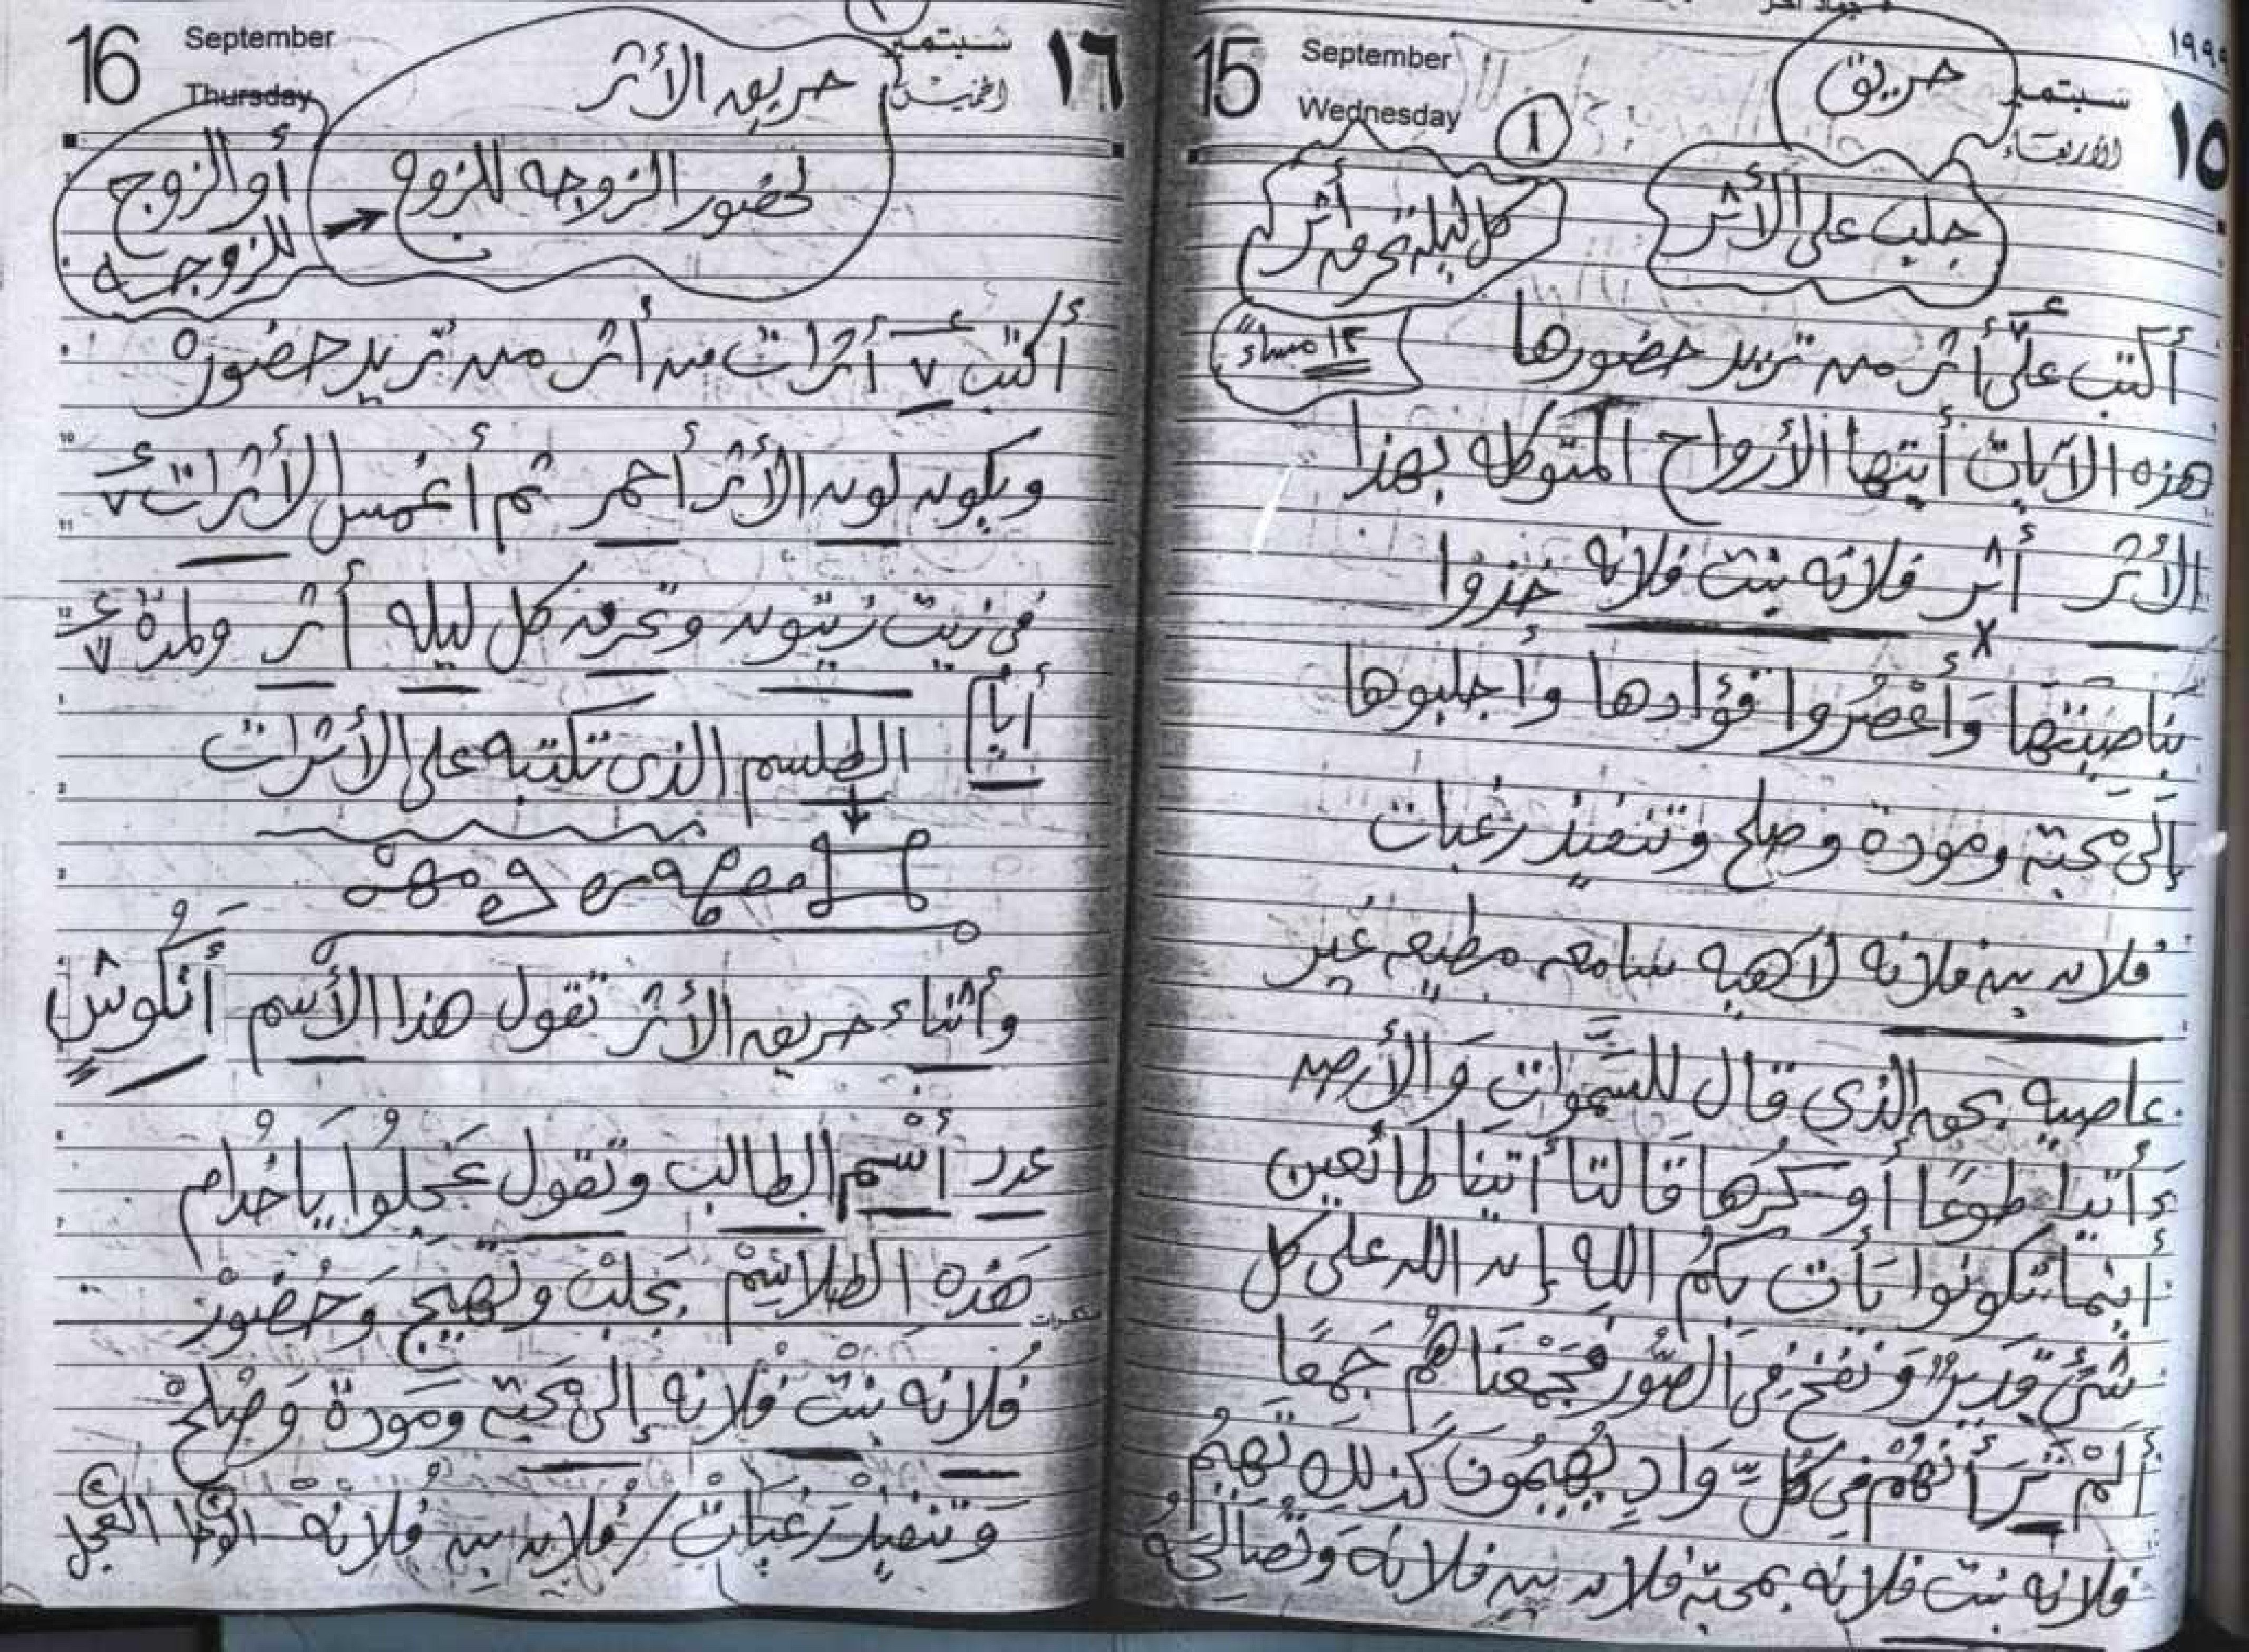 ١٩٩٩
15 September سبتمبر ١٥
Wednesday الأربعاء
حريق
١
جلب على الأثر
كل ليلة تحرق أثر
١٢ مساءً
أكتب على ٧ أثر من تريد حضورها
هذه الآيات أيتها الأرواح المتوكله بهذا
الأثر أثر فلانه بنت فلانه خذوا
بناصيتها وأعصروا فؤادها وأجلبوها
إلى محبة ومودة وصلح وتنفيذ رغبات
فلان بن فلانه لاهيه سامعه مطيعه غير
عاصيه بحق الذى قال للسموات والأرض
ءأتيا طوعًا أو كرها قالتا أتينا طائعين
أينما تكونوا يأت بكم الله إن الله على كل
شئ قدير ونفخ فى الصور فجمعناهم جمعًا
ألم تر أنهم فى كل واد يهيمون كذلك تهيم
فلانه بنت فلانه بمحبة فلان بن فلانه وتصالحه
16 September سبتمبر ١٦
Thursday الخميس
حريق الأثر
لحضور الزوجه للزوج
أو الزوج
للزوجه
أكتب ٧ أثرات من أثر من تريد حضوره
ويكون لون الأثر أحمر ثم أغمس الأثرات ٧
فى زيت زيتون وتحرق كل ليله أثر ولمدة ٧
أيام الطلسم الذى تكتبه على الأثرات
وأثناء حريق الأثر تقول هذا الأسم أنكوش
عدد أسم الطالب وتقول عجلوا ياخدام
هذه الطلاسم بجلب وتهييج وحضور
فلانه بنت فلانه إلى محبة ومودة وصلح
وتنفيذ رغبات / فلان بن فلانه الوحا ٢ العجل ٢